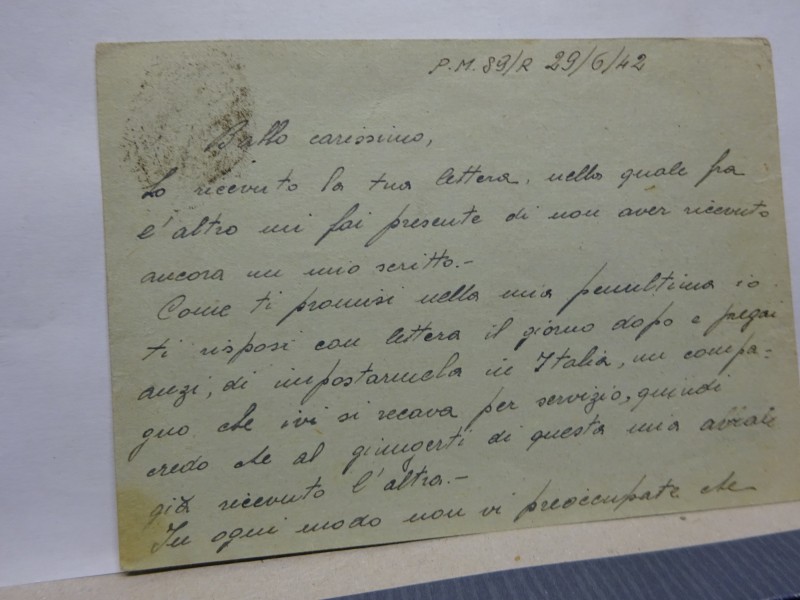 P.M. 89/R 29/6/42
carissimo,
Ho ricevuto la tua lettera, nella quale fra
l'altro mi fai presente di non aver ricevuto
ancora un mio scritto.-
Come ti promisi nella mia penultima io
ti risposi con lettera il giorno dopo e pregai
anzi, di impostarmela in Italia, un compa-
gno che ivi si recava per servizio, quindi
credo che al giungerti di questa mia avrai
già ricevuto l'altra.-
In ogni modo non vi preoccupate che